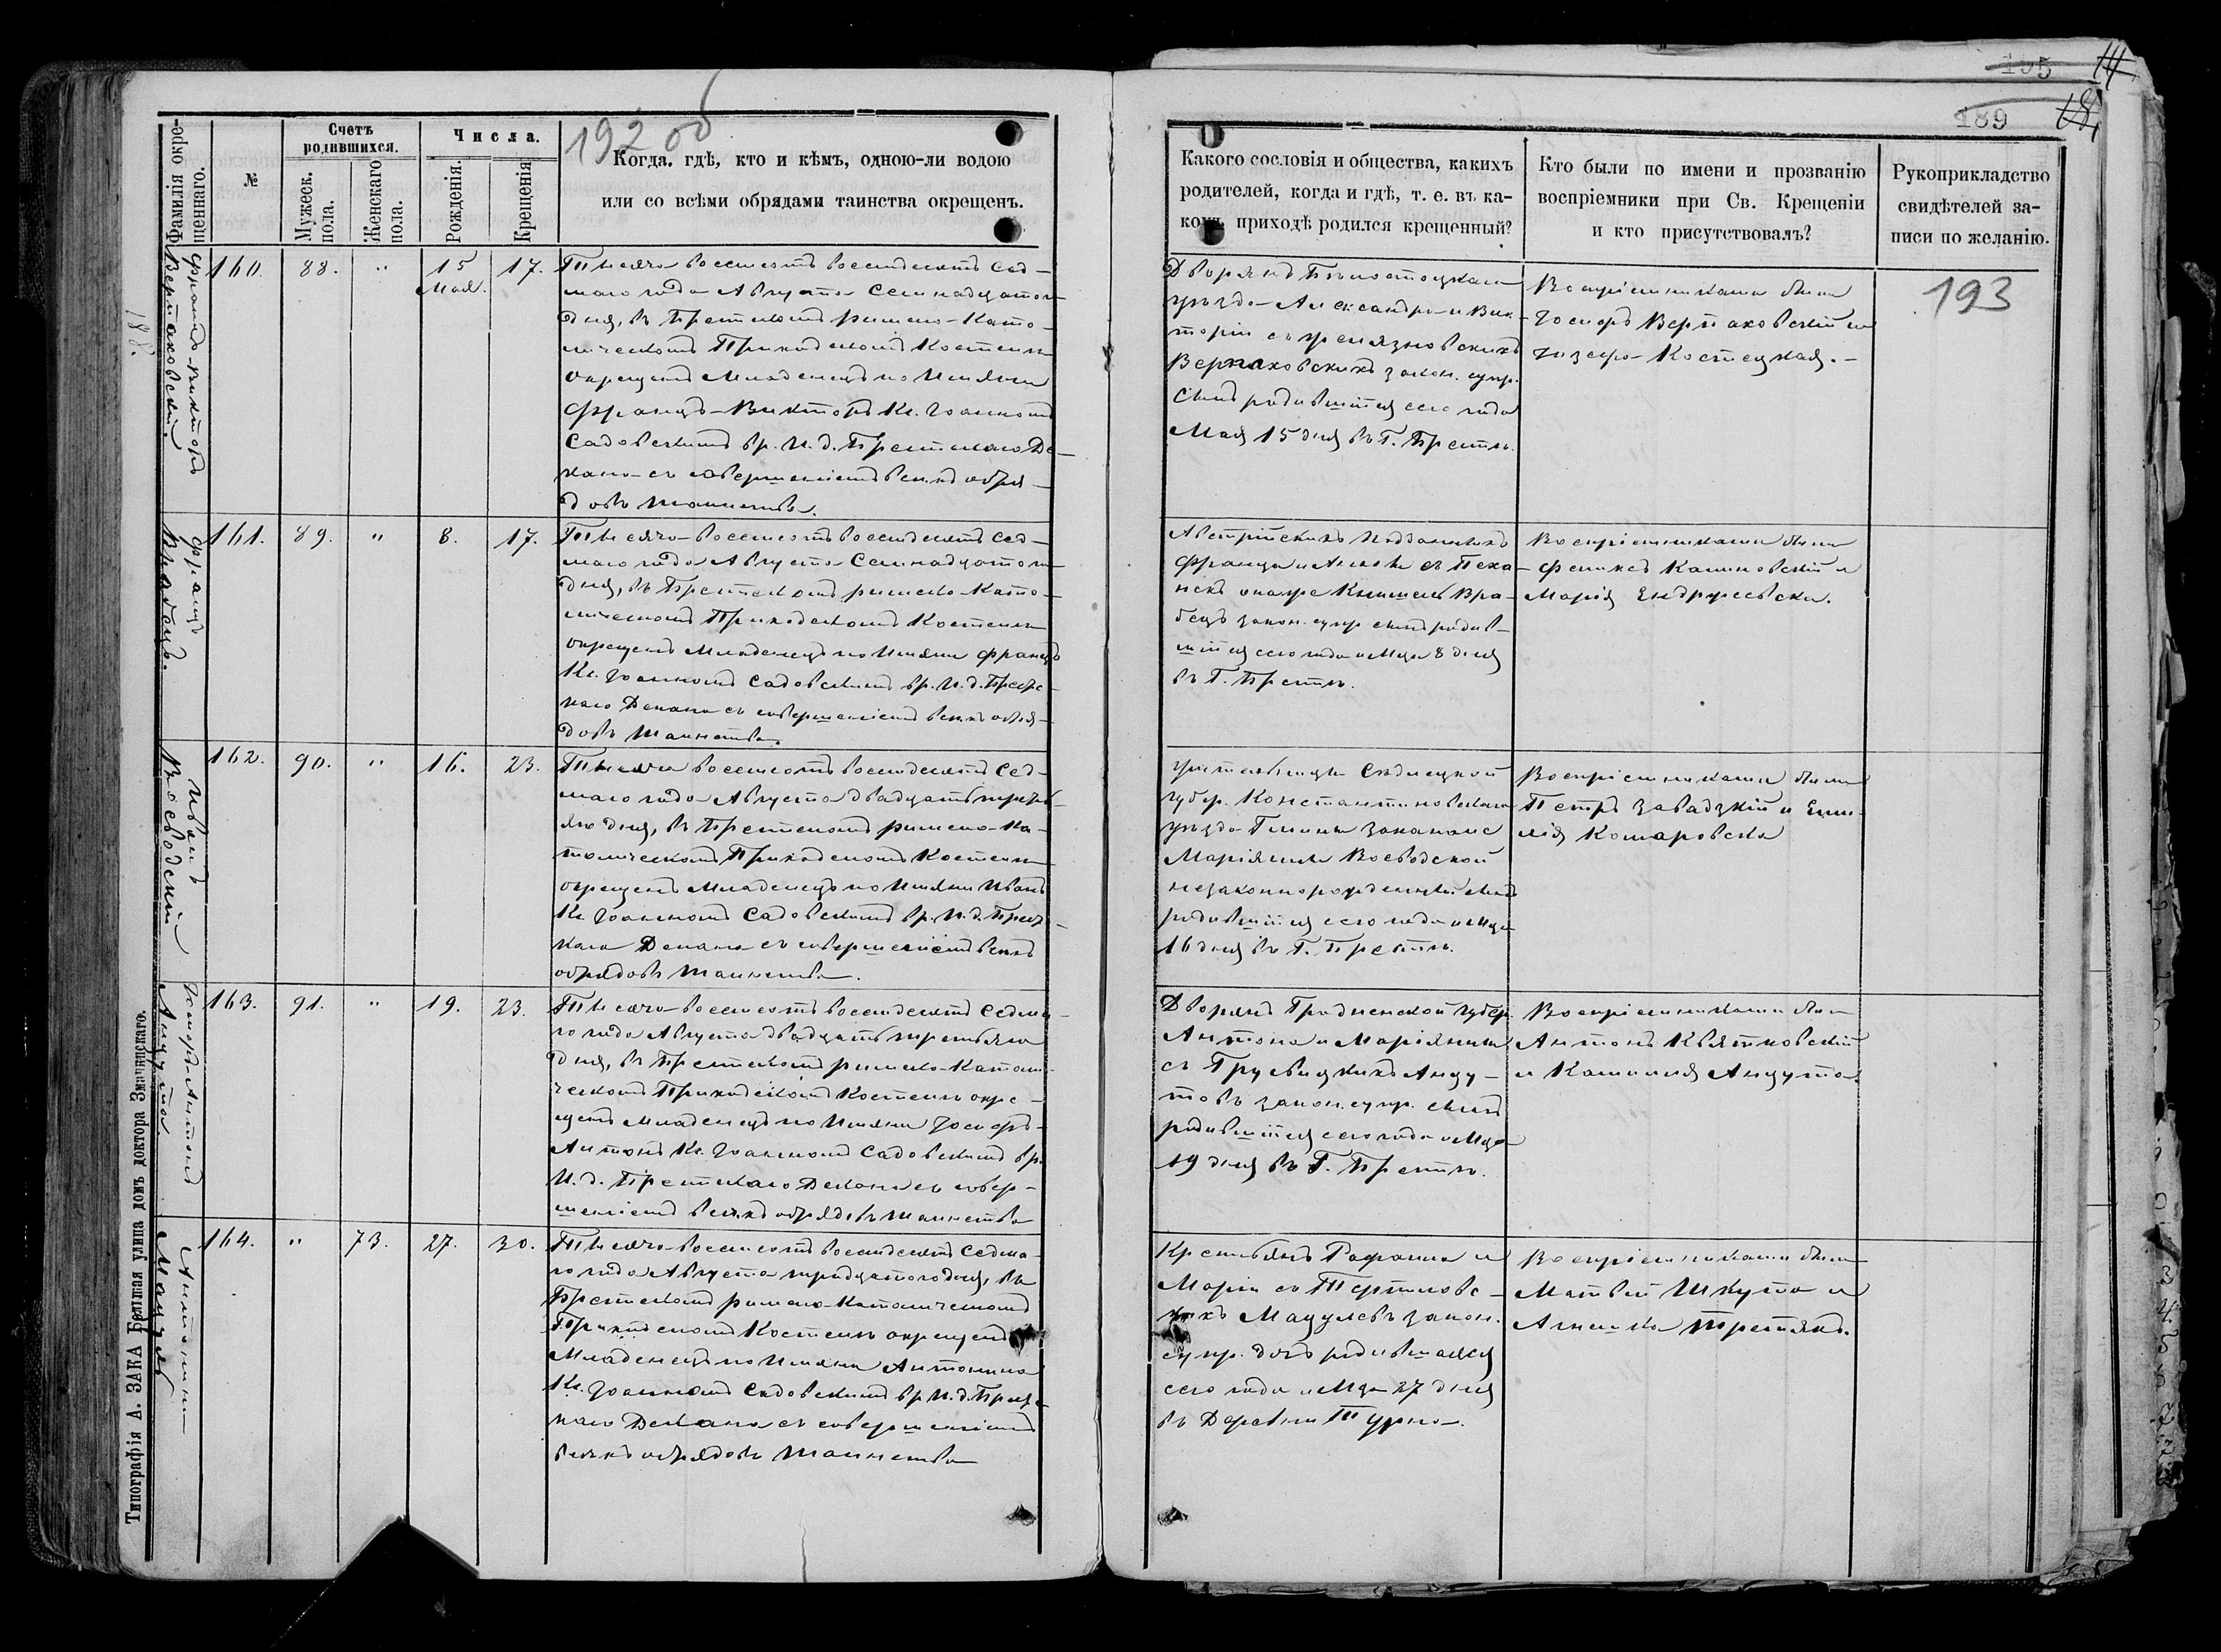 195
189
19200
Фамилія окре-
щеннаго.
№
Счетъ
родившихся.
Мужеск.
пола.
Женскаго
пола.
Числа.
Рожденія.
Крещенія
Когда, гдѣ, кто и кѣмъ, одною-ли водою
или со всѣми обрядами таинства окрещенъ.
Какого сословія и общества, какихъ
родителей, когда и гдѣ, т. е. въ ка-
комъ приходѣ родился крещенный?
Кто были по имени и прозванію
воспріемники при Св. Крещеніи
и кто присутствовалъ?
Рукоприкладство
свидѣтелей за-
писи по желанію.
193
188.
Францъ-Викторъ
160. 88. " 15 Мая. 17.
Тысяча восемсотъ восемдесятъ сед-
маго года Августа Семнадцатого
дня, въ Брестскомъ римско-Като-
лическомъ Приходскомъ Костелѣ
окрещенъ Младенецъ по Имяни
Францъ-Викторъ Кс. Іоанномъ
Садовскимъ вр. И. д. Брестскаго Де-
кана съ совершеніемъ всѣхъ обря-
довъ таинства.
Дворянъ Бѣлостоцкаго
уѣзда Александра и Вик-
торіи
закон. супр.
Сынъ родившійся сего года
Мая 15 дня въ Г. Брестѣ.
Воспріемниками были
Іосифъ и
Юзефа Костецкая.
Францъ
Врабецъ.
161. 89. " 8. 17.
Тысяча восемсотъ восемдесятъ сед-
маго года Августа Семнадцатого
дня, въ Брестскомъ римско-Като-
лическомъ Приходскомъ Костелѣ
окрещенъ Младенецъ по Имяни Францъ
Кс. Іоанномъ Садовскимъ вр. И. д. Брест-
каго Декана съ совершеніемъ всѣхъ обря-
довъ таинства.
Австрійскихъ Подданныхъ
Франца и Анны съ
Вра-
бецъ закон. супр. сынъ родив-
шійся сего года и Мца 8 дня
въ Г. Брестѣ.
Воспріемниками были
Феликсъ Калиновскій и
Марія Ендржеевска.
Иванъ
Воеводскій
162. 90. " 16. 23.
Тысяча восемсотъ восемдесятъ сед-
маго года Августа двадцать треть-
яго дня, въ Брестскомъ римско-Ка-
толическомъ Приходскомъ Костелѣ
окрещенъ Младенецъ по Имяни Иванъ
Кс. Іоанномъ Садовскимъ вр. И. д. Брест-
каго Декана съ совершеніемъ всѣхъ
обрядовъ таинства.
Жительницы Сѣдлецкой
губер. Константиновскаго
уѣзда Гмины
Маріянны Воеводской
незаконнорожденный сынъ
родившійся сего года и Мца
16 дня въ Г. Брестѣ.
Воспріемниками были
Петръ Завадзкій и Еми-
лія Комаровска
Іосифъ-Антонъ
Андута.
163. 91. " 19. 23.
Тысяча восемсотъ восемдесятъ седма-
го года Августа двадцать третьяго
дня, въ Брестскомъ римско-Католи-
ческомъ Приходскомъ Костелѣ окре-
щенъ Младенецъ по Имяни Іосифъ-
Антонъ Кс. Іоанномъ Садовскимъ вр.
И. д. Брестскаго Декана съ совер-
шеніемъ всѣхъ обрядовъ таинства
Дворянъ Гродненской губер.
Антона и Маріянны
съ Анду-
товъ закон. супр. сынъ
родившійся сего года и Мца
19 дня въ Г. Брестѣ.
Воспріемниками были
Антонъ Квятковскій
и Камилія Андута
Антонина
Мацуль
164. " 73. 27. 30.
Тысяча восемсотъ восемдесятъ седма-
го года Августа тридцатого дня, въ
Брестскомъ римско-Католическомъ
Приходскомъ Костелѣ окрещенъ
Младенецъ по Имяни Антонина
Кс. Іоанномъ Садовскимъ вр. И. д. Брест-
каго Декана съ совершеніемъ
всѣхъ обрядовъ таинства
Крестьянъ Рафаила и
Маріи съ
закон.
супр. дочь родившаяся
сего года и Мца 27 дня
въ Деревни Турна.
Воспріемниками были
Матвѣй Шкута и
Агнешка Третякъ.
Типографія А. ЗАКА Бѣлая улица домъ доктора Значинскаго.